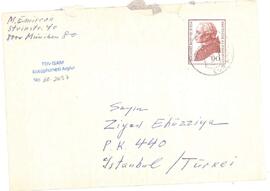 M. Emircan
Steinstr. 40
8000 München 80
TDV İSAM
Kütüphanesi Arşivi
No
90
Sayın
Ziyad Ebüzziya
PK 440
Istanbul / Türkei